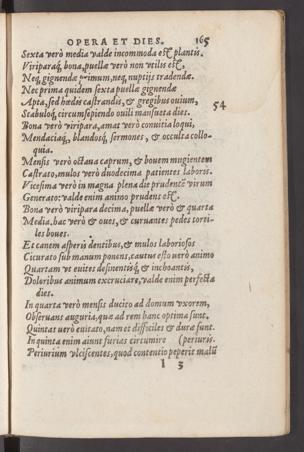 OPERA ET DIES. 165
Sexta verò media valde incommoda est plantis.
Viriparaq́, bona, puellæ verò non vtilis est,
Neq, gignendæ primum, neq, nuptijs tradendæ.
Nec prima quidem sexta puellæ gignendæ
Apta, sed hædis castrandis, & gregibus ouium,
54
Stabuloq́, circumsepiendo ouili mansueta dies.
Bona verò viripara, amat verò conuitia loqui,
Mendaciaq́, blandosq́, sermones, & occulta collo-
quia.
Mensis verò octaua caprum, & bouem mugientem
Castrato, mulos verò duodecima patientes laboris.
Vicesima verò in magna plena die prudentē virum
Generato: valde enim animo prudens est.
Bona verò viripara decima, puellæ verò & quarta
Media. hac verò & oues, & curuantes pedes torti-
les boues.
Et canem asperis dentibus, & mulos laboriosos
Cicurato sub manum ponens, cautus esto verò animo
Quartam vt euites desinentisq́, & inchoantis,
Doloribus animum excruciare, valde enim perfecta
dies.
In quarta verò mensis ducito ad domum vxorem,
Obseruans auguria, quæ ad rem hanc optima sunt.
Quintas verò euitato, nam et difficiles & duræ sunt.
In quinta enim aiunt furias circumire (periuris.
Periurium vlciscentes, quod contentio peperit malū
l 3